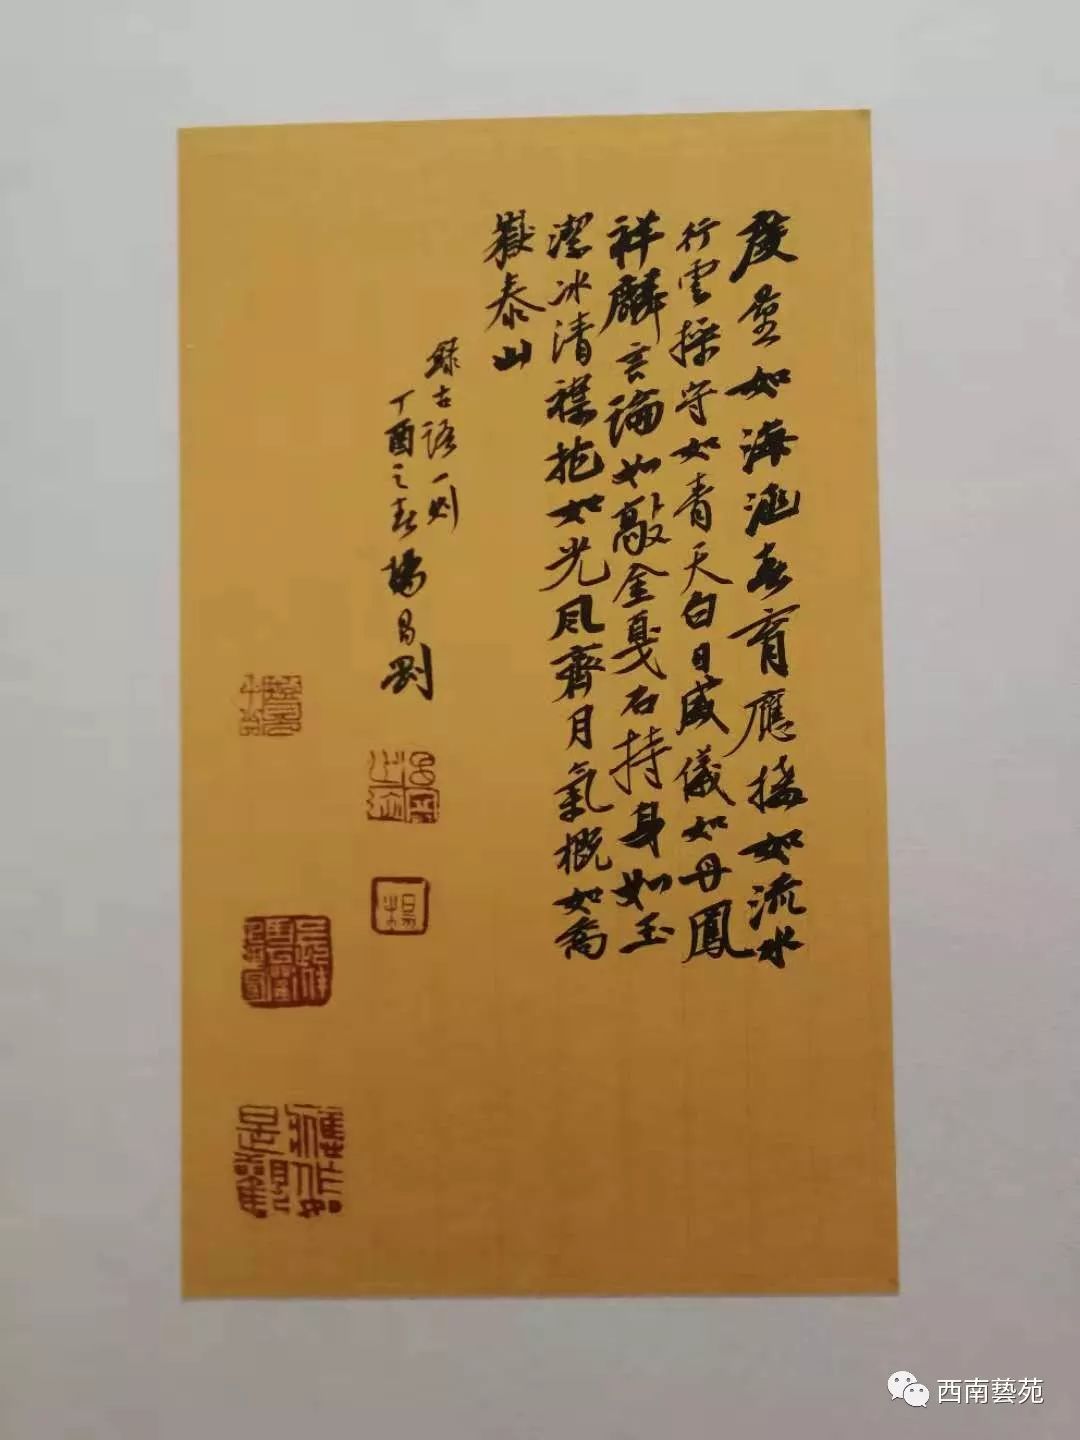 度量如海涵春育應接如流水
行雲操守如青天白日威儀如丹鳳
祥麟言論如敲金戛石持身如玉
潔冰清襟抱如光風齊月氣概如喬
嶽泰山
錄古語一則
丁酉之春楊昌剛
楊
西南藝苑